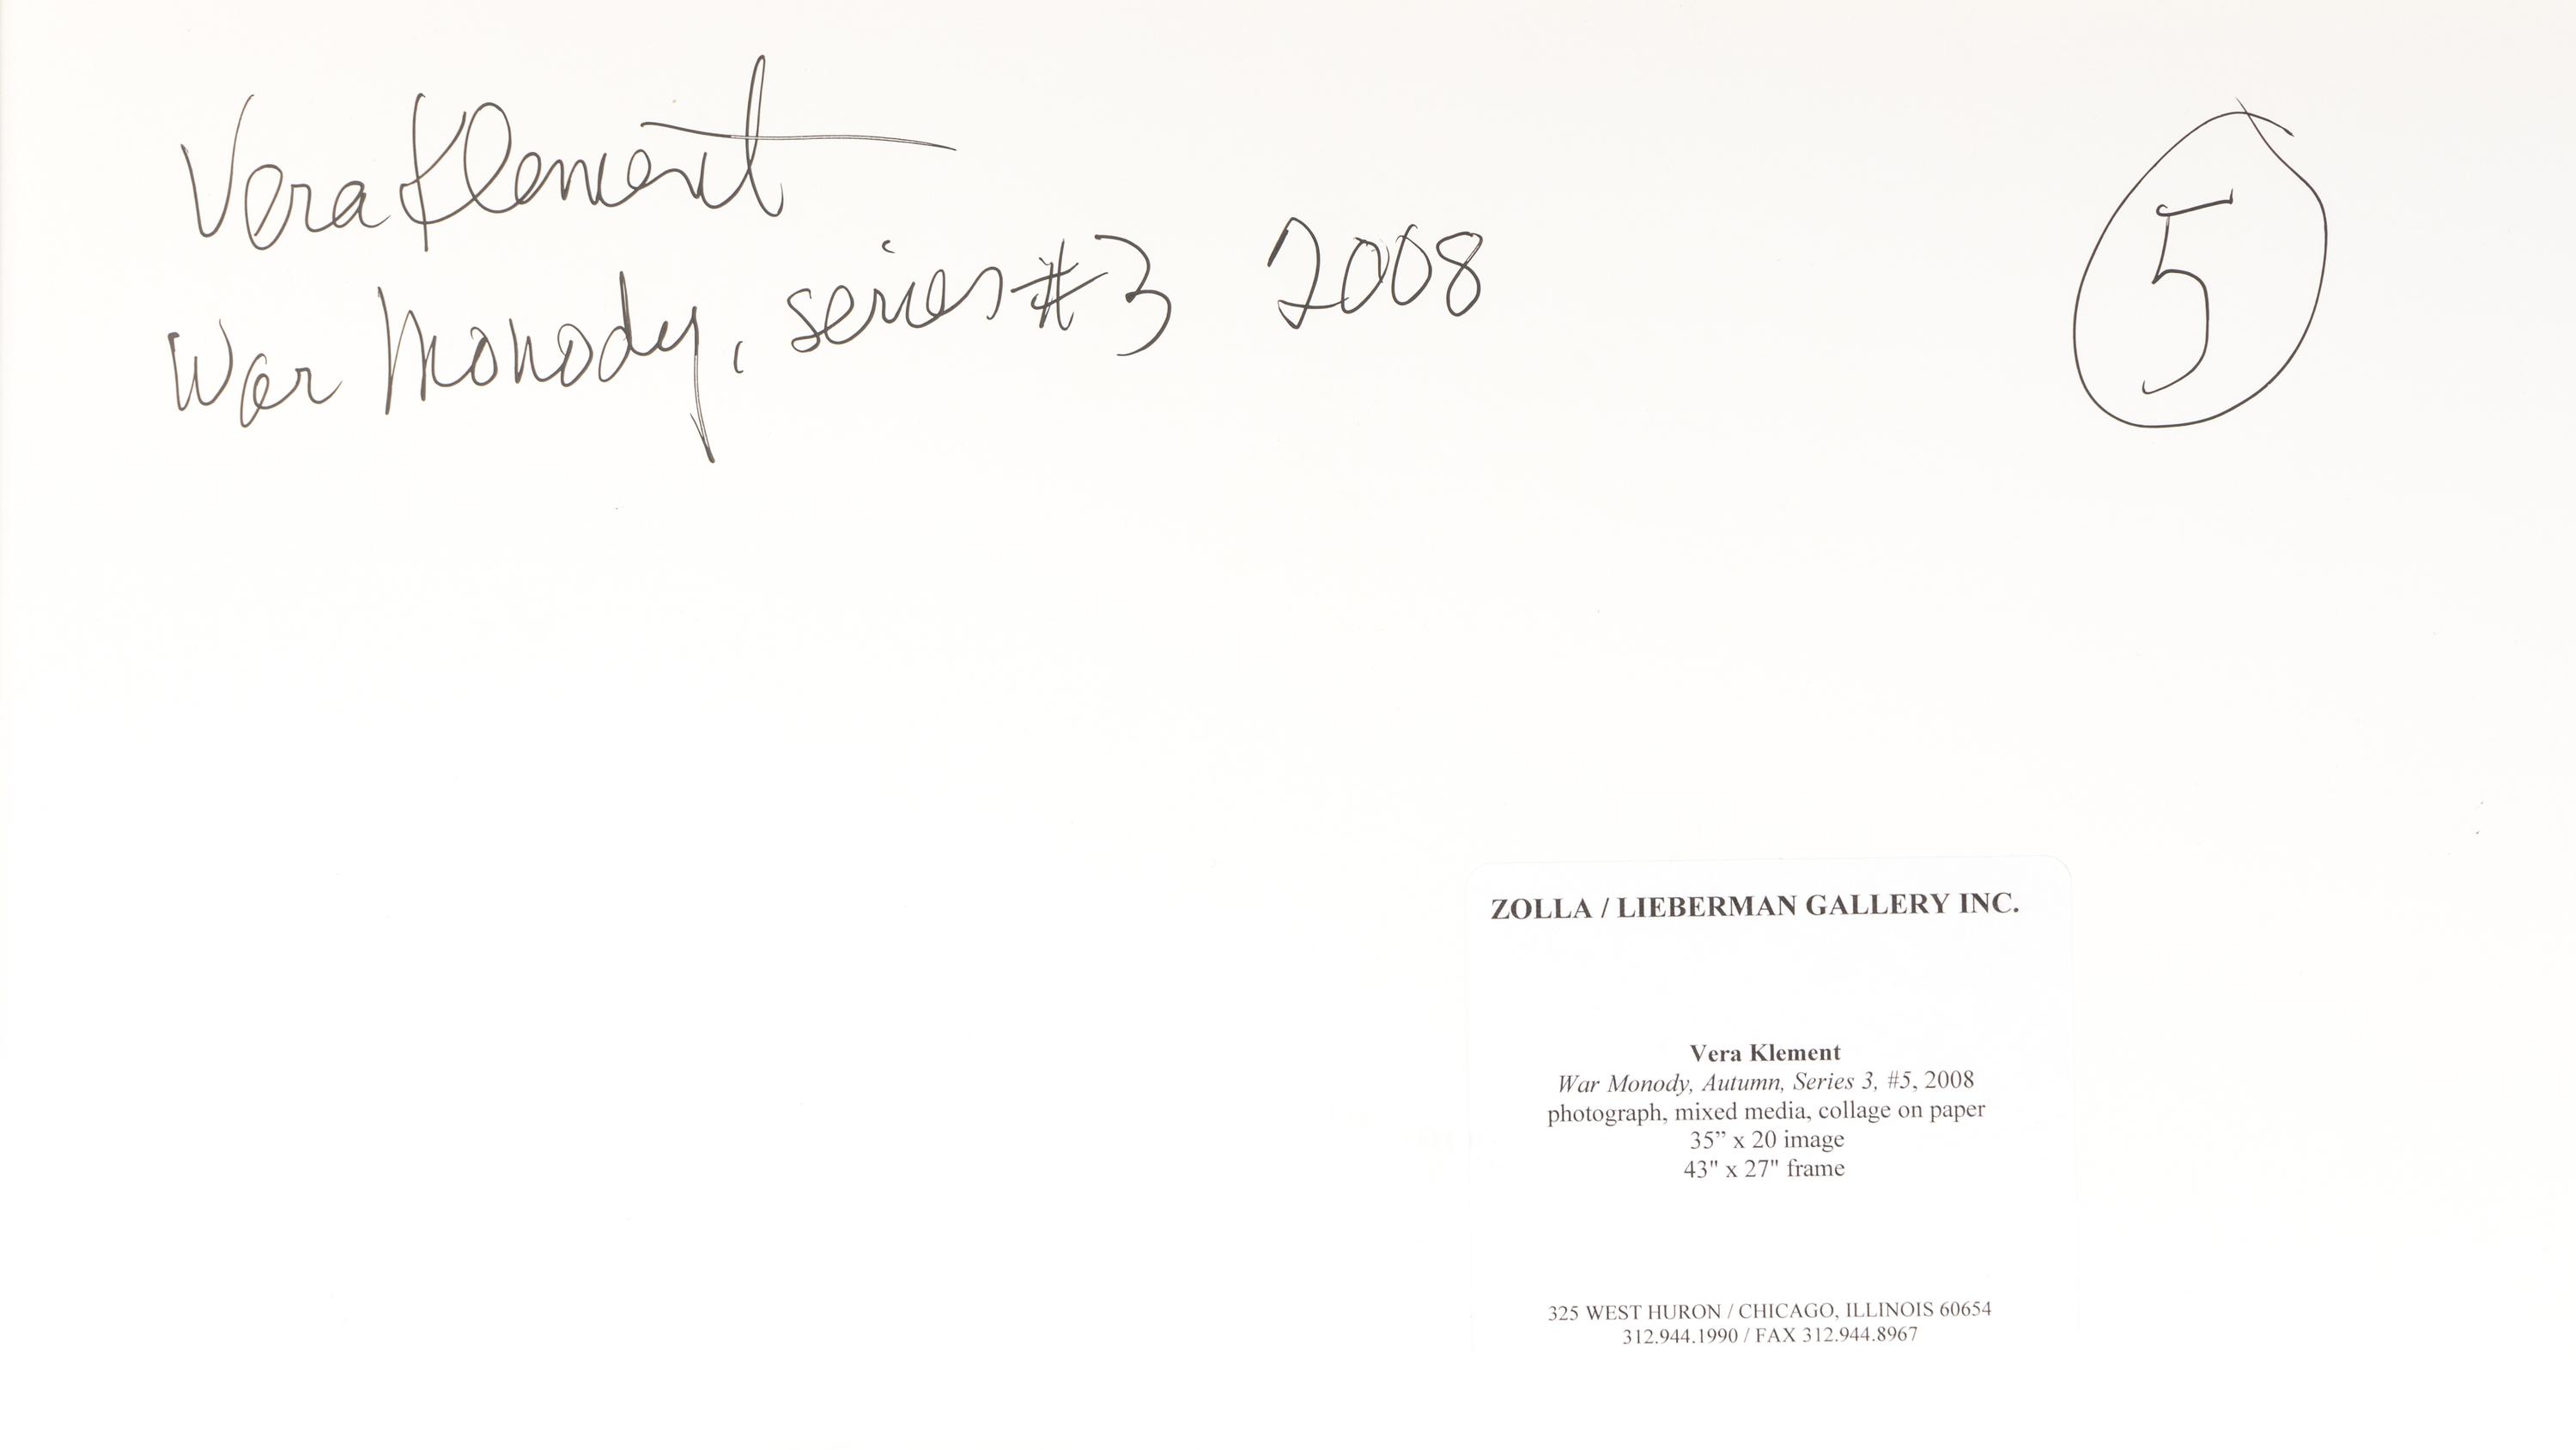 Vera Klement
War Monody, series #3 2008
5
ZOLLA / LIEBERMAN GALLERY INC.
Vera Klement
War Monody, Autumn, Series 3, #5, 2008
photograph, mixed media, collage on paper
35” x 20 image
43" x 27" frame
325 WEST HURON / CHICAGO, ILLINOIS 60654
312.944.1990 / FAX 312.944.8967